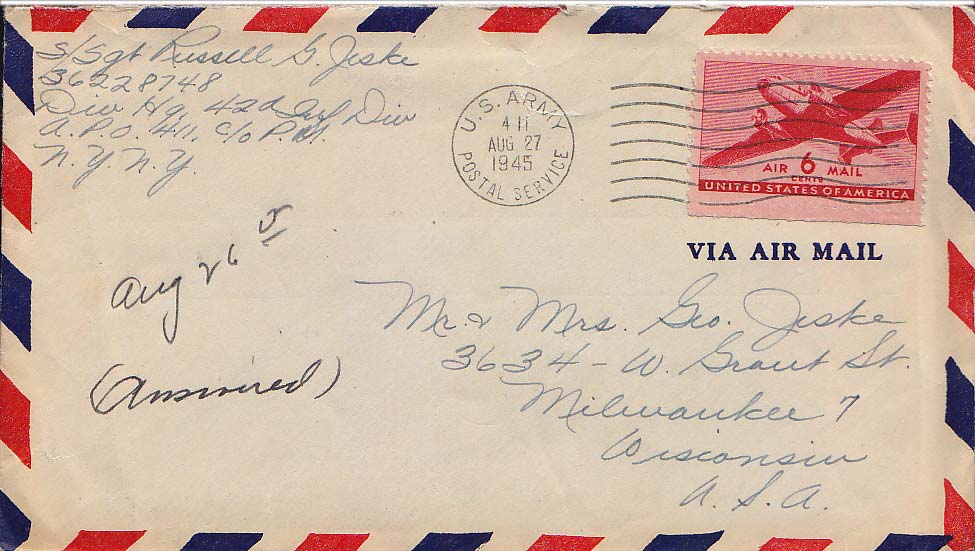 S/Sgt Russell G. Jeske
36228748
Div Hq. 42d Inf Div
A.P.O. 411, c/o P.M.
N.Y. N.Y.
U.S. ARMY
4 11
AUG 27
1945
POSTAL SERVICE
AIR 6 MAIL
CENTS
UNITED STATES OF AMERICA
VIA AIR MAIL
Aug 26
(Answered)
Mr. & Mrs. Geo. Jeske
3634 - W. Grant St.
Milwaukee 7
Wisconsin
U.S.A.